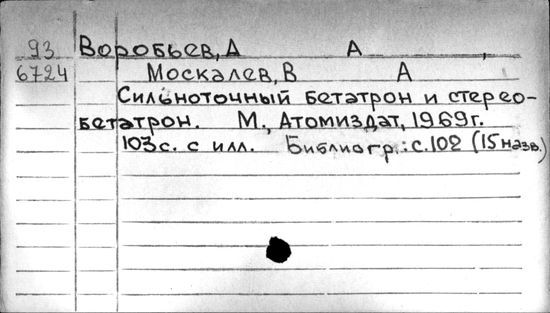 93 Воробьев, Д А ,
6724 Москалев, В А
Сильноточный бетатрон и стерео-
бетатрон. М., Атомиздат, 1969г.
103с. с илл. Библиогр.: с.102 (15 назв.)